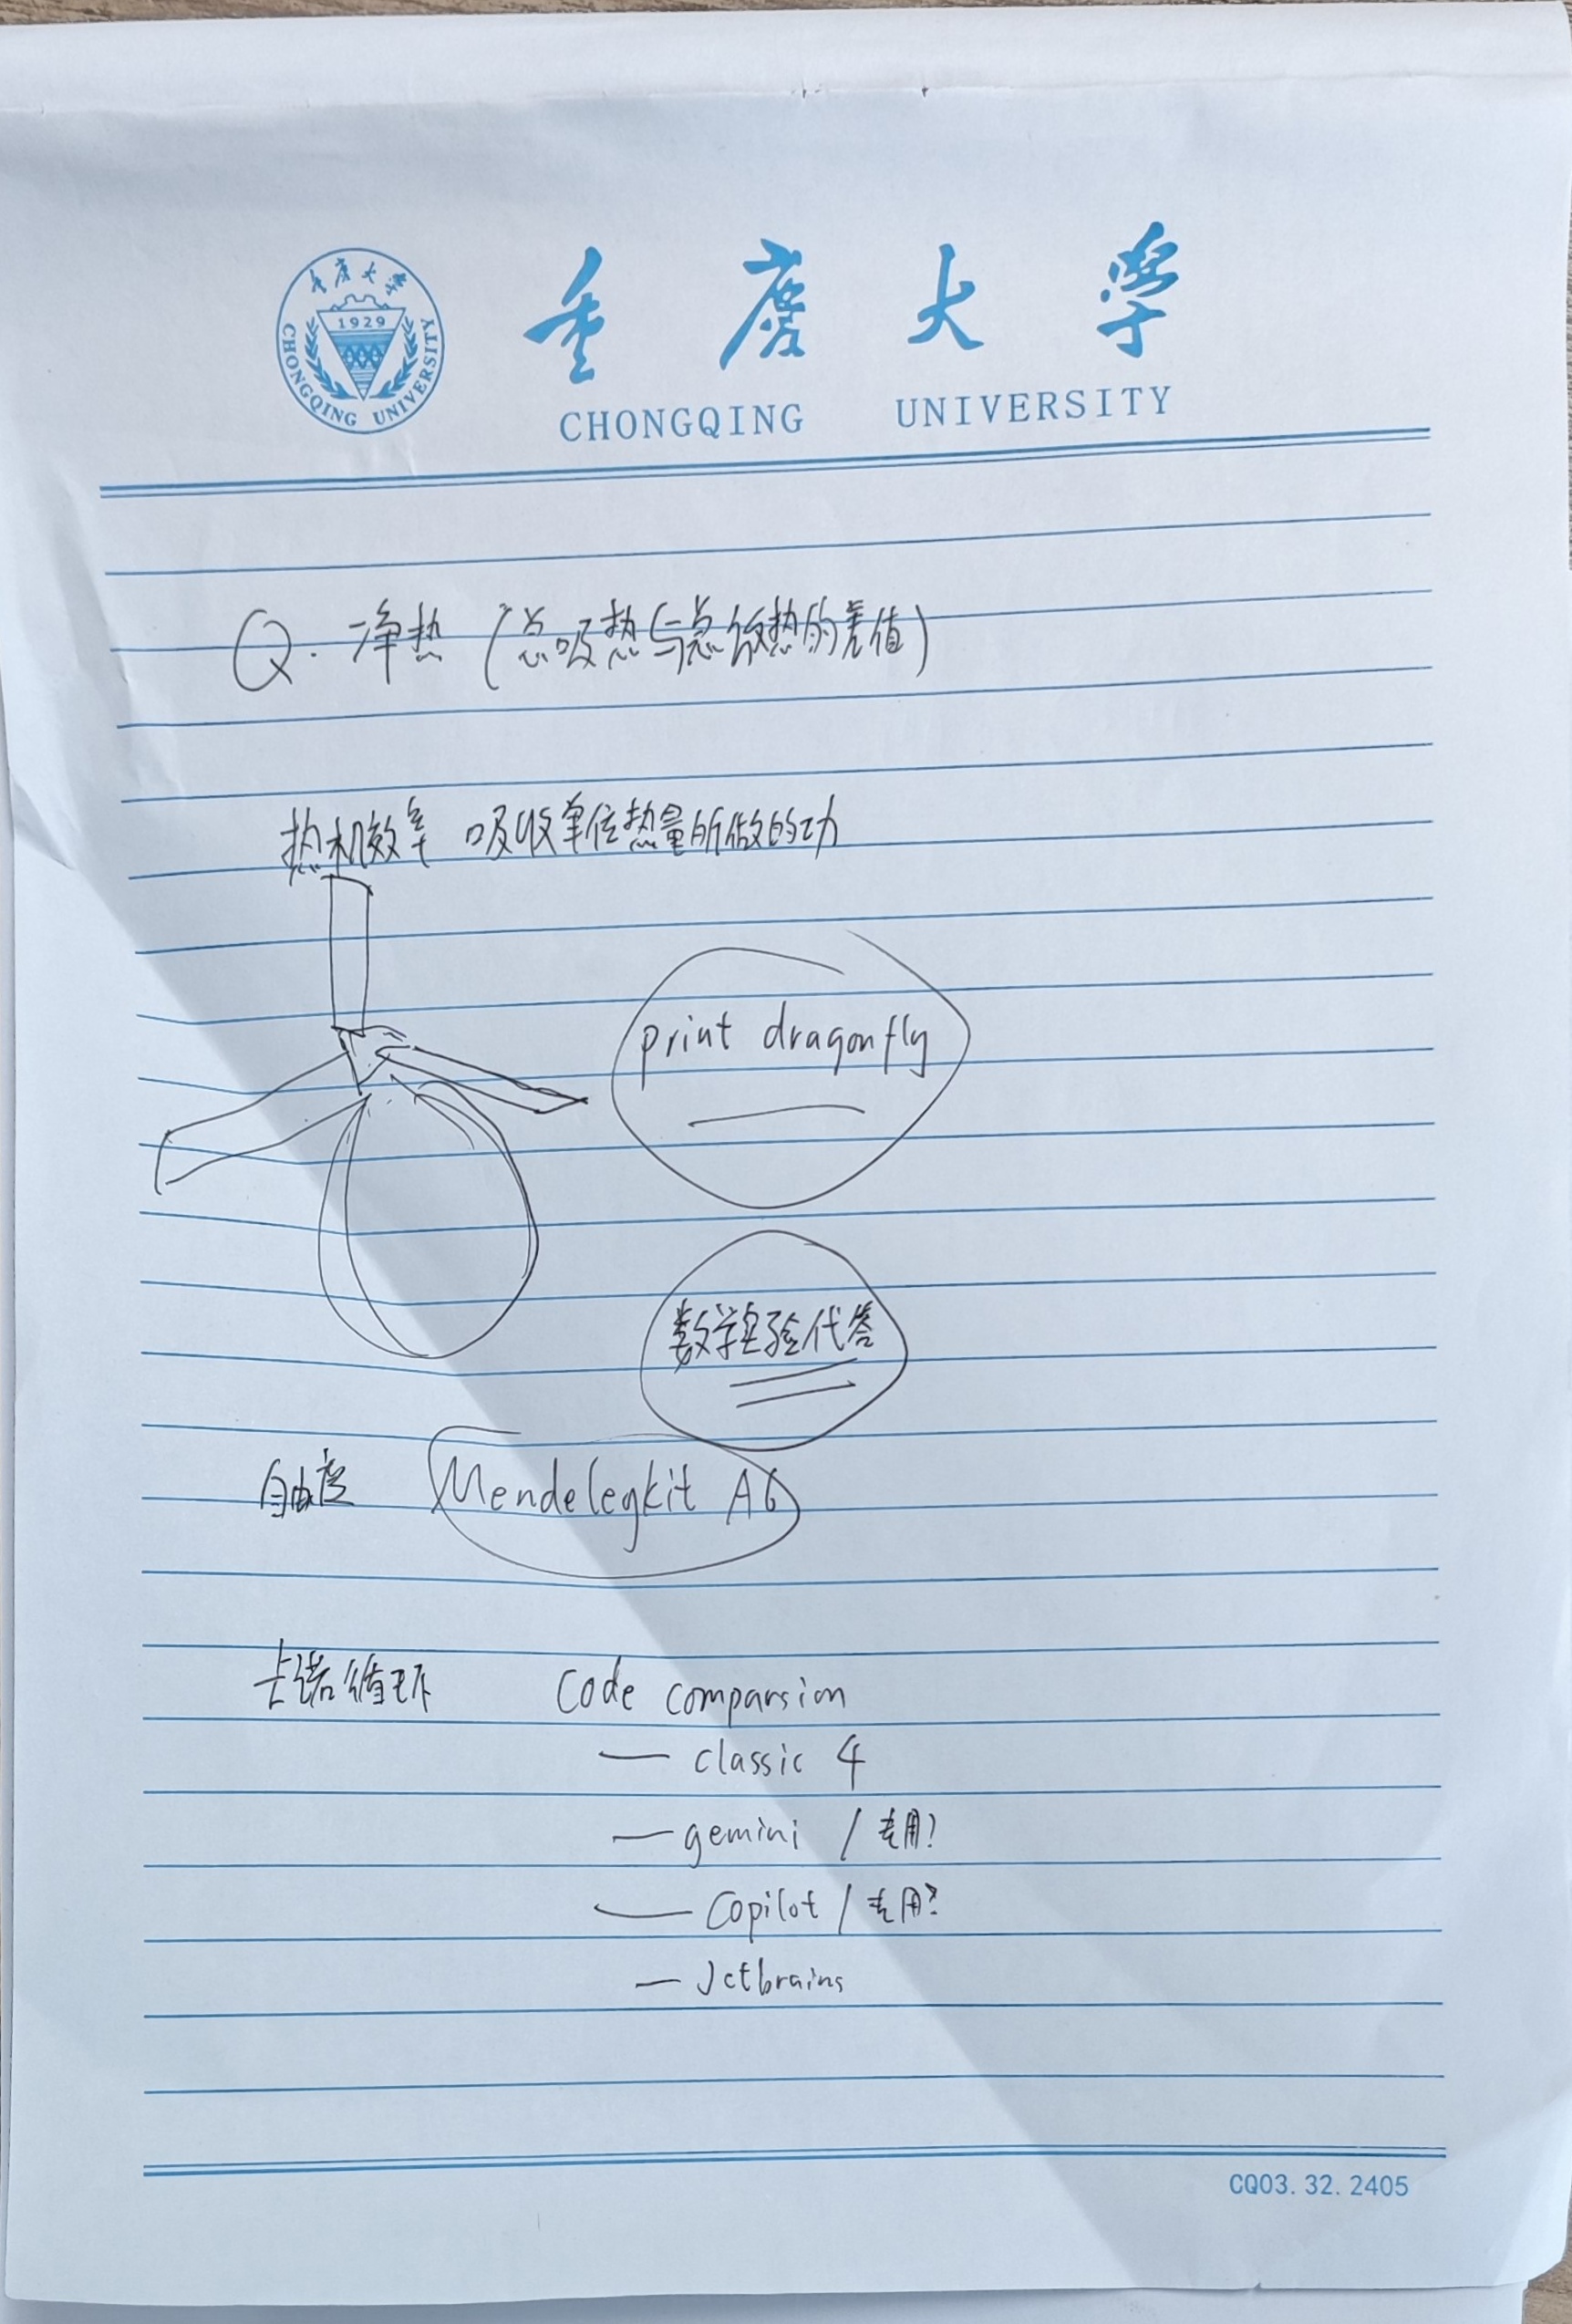 重庆大学
1929
CHONGQING UNIVERSITY
重庆大学
CHONGQING UNIVERSITY
Q. 净热 (总吸热与总放热的差值)
热机效率 吸收单位热量所做的功
print dragonfly
数学实验代答
自由度 Mendelegkit A6
卡诺循环 Code comparsion
— classic 4
— gemini / 专用?
— Copilot / 专用?
— Jetbrains
CQ03.32.2405